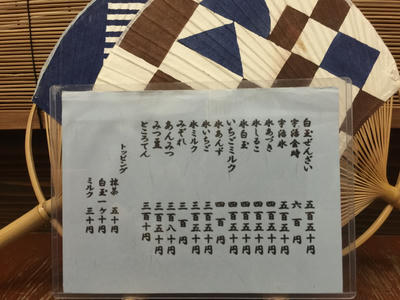 白玉ぜんざい 五百五十円
宇治金時 六百円
宇治氷 四百五十円
氷あづき 四百五十円
氷しるこ 四百五十円
氷白玉 四百五十円
いちごミルク 四百五十円
氷あんず 四百円
氷いちご 三百五十円
氷ミルク 三百五十円
みぞれ 三百円
あんみつ 三百八十円
みつ豆 三百五十円
ところてん 三百十円
トッピング
抹茶 五十円
白玉一ヶ十円
ミルク 三十円